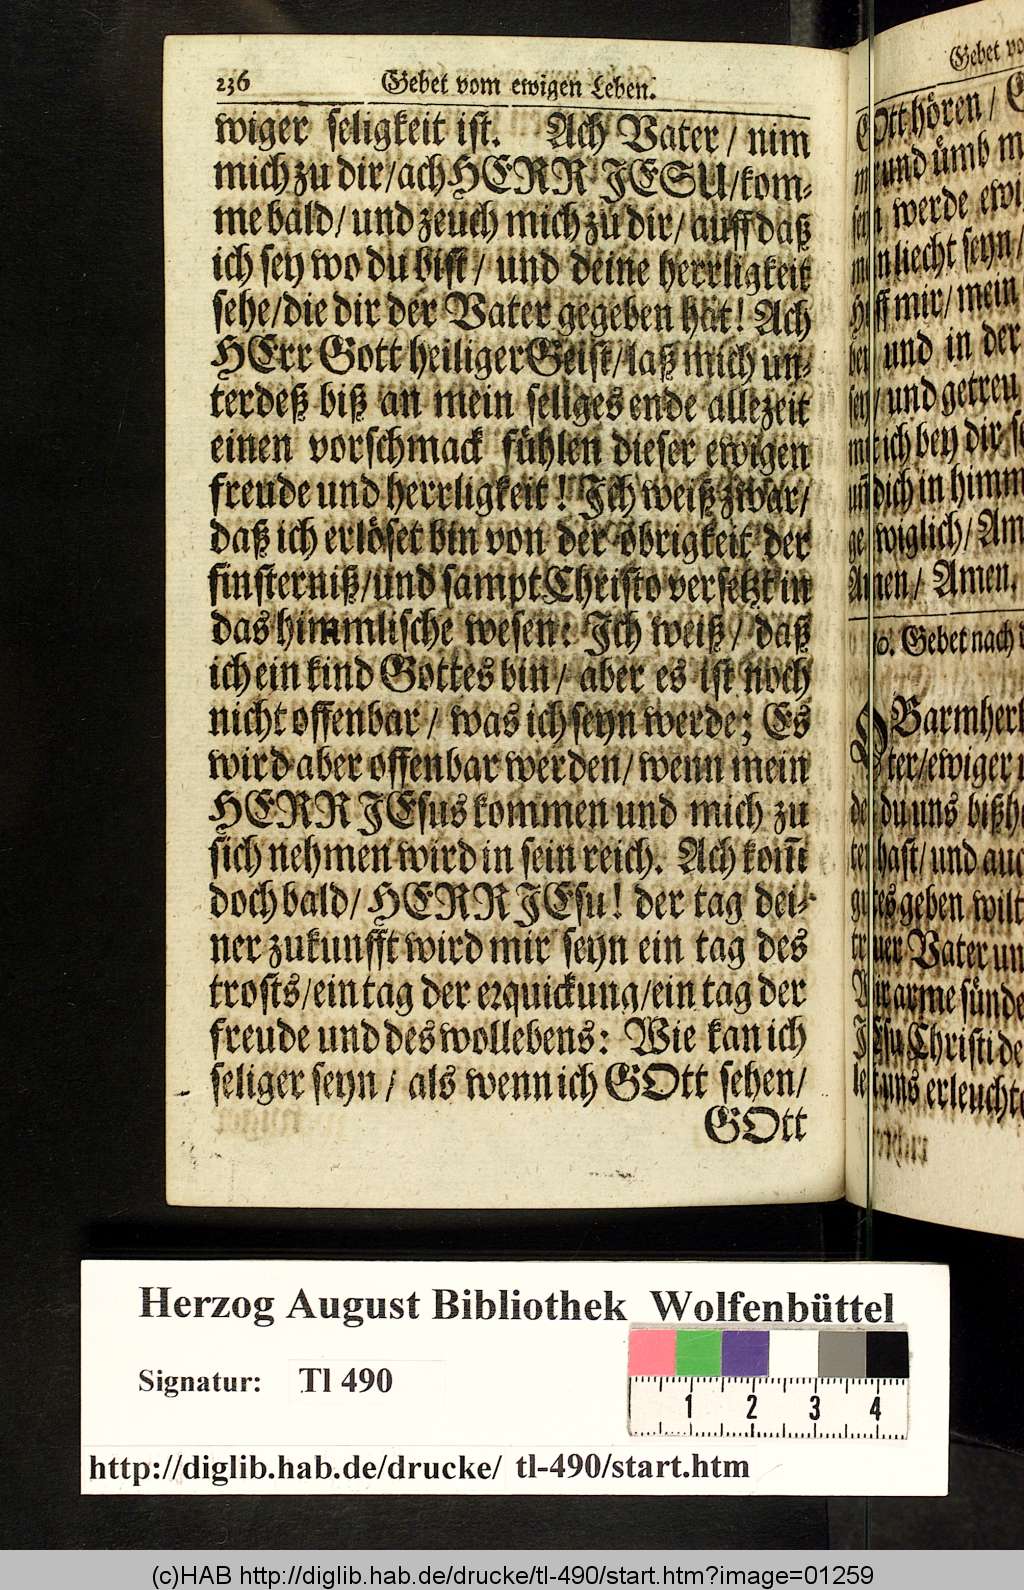 236 Gebet vom ewigen Leben.
wiger seligkeit ist. Ach Vater / nim
mich zu dir/ach HERR JESU/kom-
me bald/ und zeuch mich zu dir/ auff daß
ich sey wo du bist/ und deine herrligkeit
sehe/die dir der Vater gegeben hat! Ach
HErr Gott heiliger Geist/laß mich un-
terdeß biß an mein seliges ende allezeit
einen vorschmack fühlen dieser ewigen
freude und herrligkeit! Ich weiß zwar/
daß ich erlöset bin von der obrigkeit der
finsterniß/und sampt Christo versetzt in
das himmlische wesen: Ich weiß/ daß
ich ein kind Gottes bin/ aber es ist noch
nicht offenbar/ was ich seyn werde; Es
wird aber offenbar werden/wenn mein
HERR JEsus kommen und mich zu
sich nehmen wird in sein reich. Ach kom̃t
doch bald/ HERR JEsu! der tag dei-
ner zukunfft wird mir seyn ein tag des
trosts/ein tag der erquickung/ein tag der
freude und des wollebens: Wie kan ich
seliger seyn/ als wenn ich GOtt sehen/
GOtt
Gebet
GOtt hören/
und ümb
werde
liecht seyn/
mir/ mein
und in der
und getreu
ich bey dir
dich in
wiglich/
Amen/ Amen.
10. Gebet nach
OBarmher
ter/ewiger
du uns
hast/ und
geben wilt
Vater
arme
JEsu Christi
uns
Herzog August Bibliothek Wolfenbüttel
Signatur: Tl 490
1 2 3 4
http://diglib.hab.de/drucke/ tl-490/start.htm
(c)HAB http://diglib.hab.de/drucke/tl-490/start.htm?image=01259